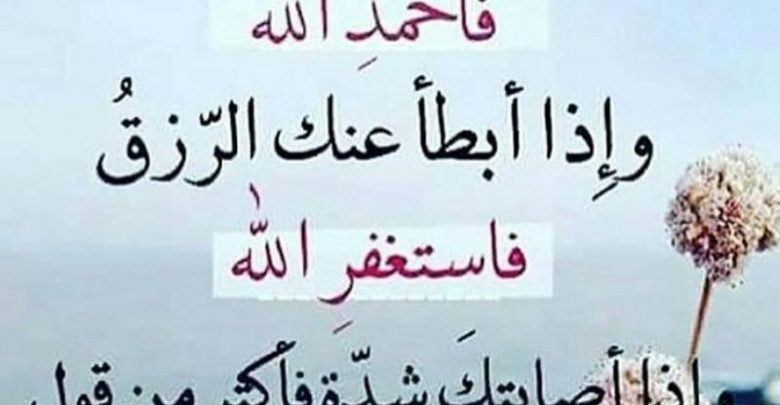 فاحمدِ الله
وإِذا أبطأ عنك الرّزقُ
فاستغفرِ اللّٰه
وإذا أصابتكَ شدّة فأكثر من قول